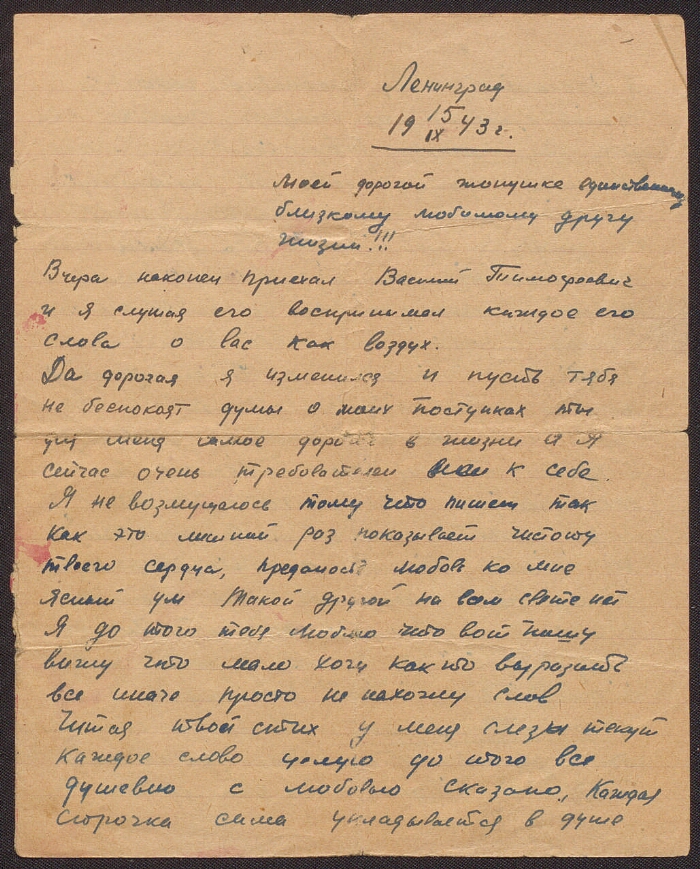 Ленинград
19 15/IX 43 г.
Моей дорогой жонушке единственному
близкому любимому другу
жизни!!!
Вчера наконец приехал Василий Тимофеевич
и я слушая его воспринимал каждое его
слова о вас как воздух.
Да дорогая я изменился и пусть тебя
не беспокоят думы о моих поступках ты
для меня самое дорогое в жизни а я
сейчас очень требователен к себе.
Я не возмущаюсь тому что пишеш так
как это лишний раз показывает чистоту
твоего сердца, преданость любовь ко мне
ясный ум Такой другой на всем свете нет
Я до того тебя люблю что вот пишу
вижу что мало хочу както выразить
все иначе просто не нахожу слов
Читая твой стих у меня слезы текут
Каждое слово целую до того все
душевно с любовью сказано, Каждая
строчка сама укладывается в душе